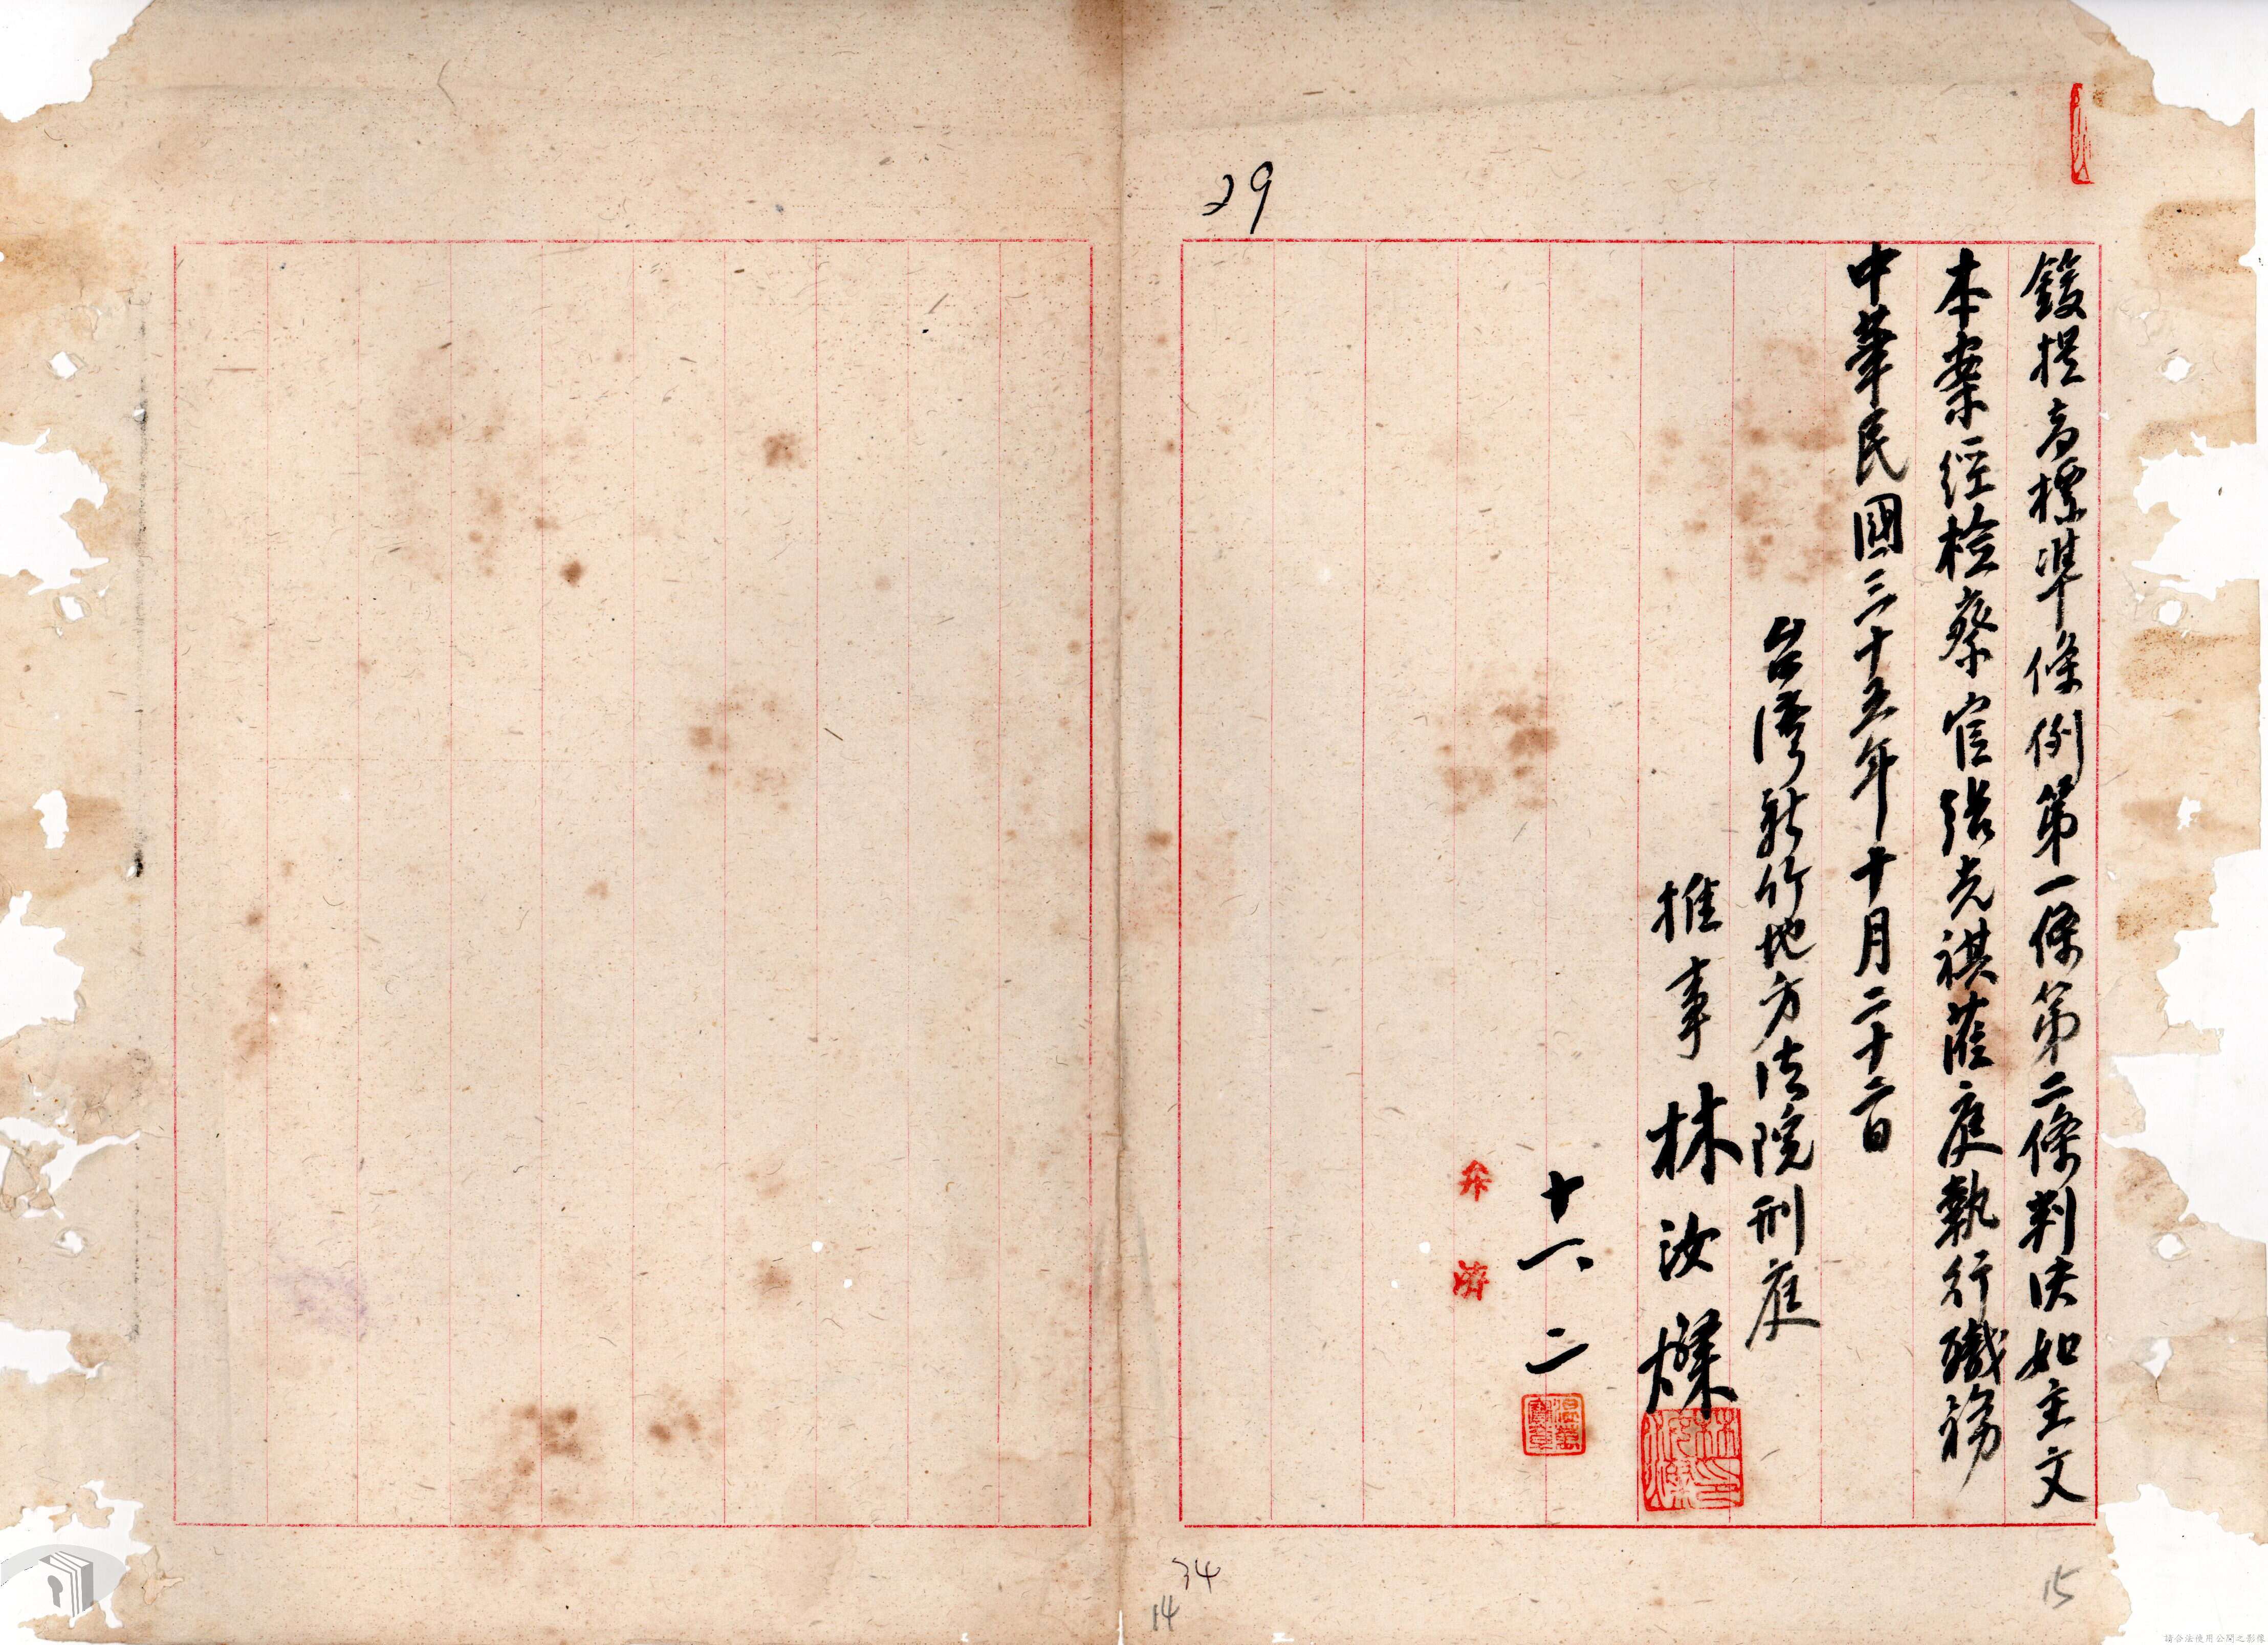 鍰提高標準條例第一條第二條判決如主文
本案經檢察官張光祺蒞庭執行職務
中華民國三十五年十月二十二日
台灣新竹地方法院刑庭
推事 林汝燦
十一、二
29
34
14
15
請合法使用公開之影像